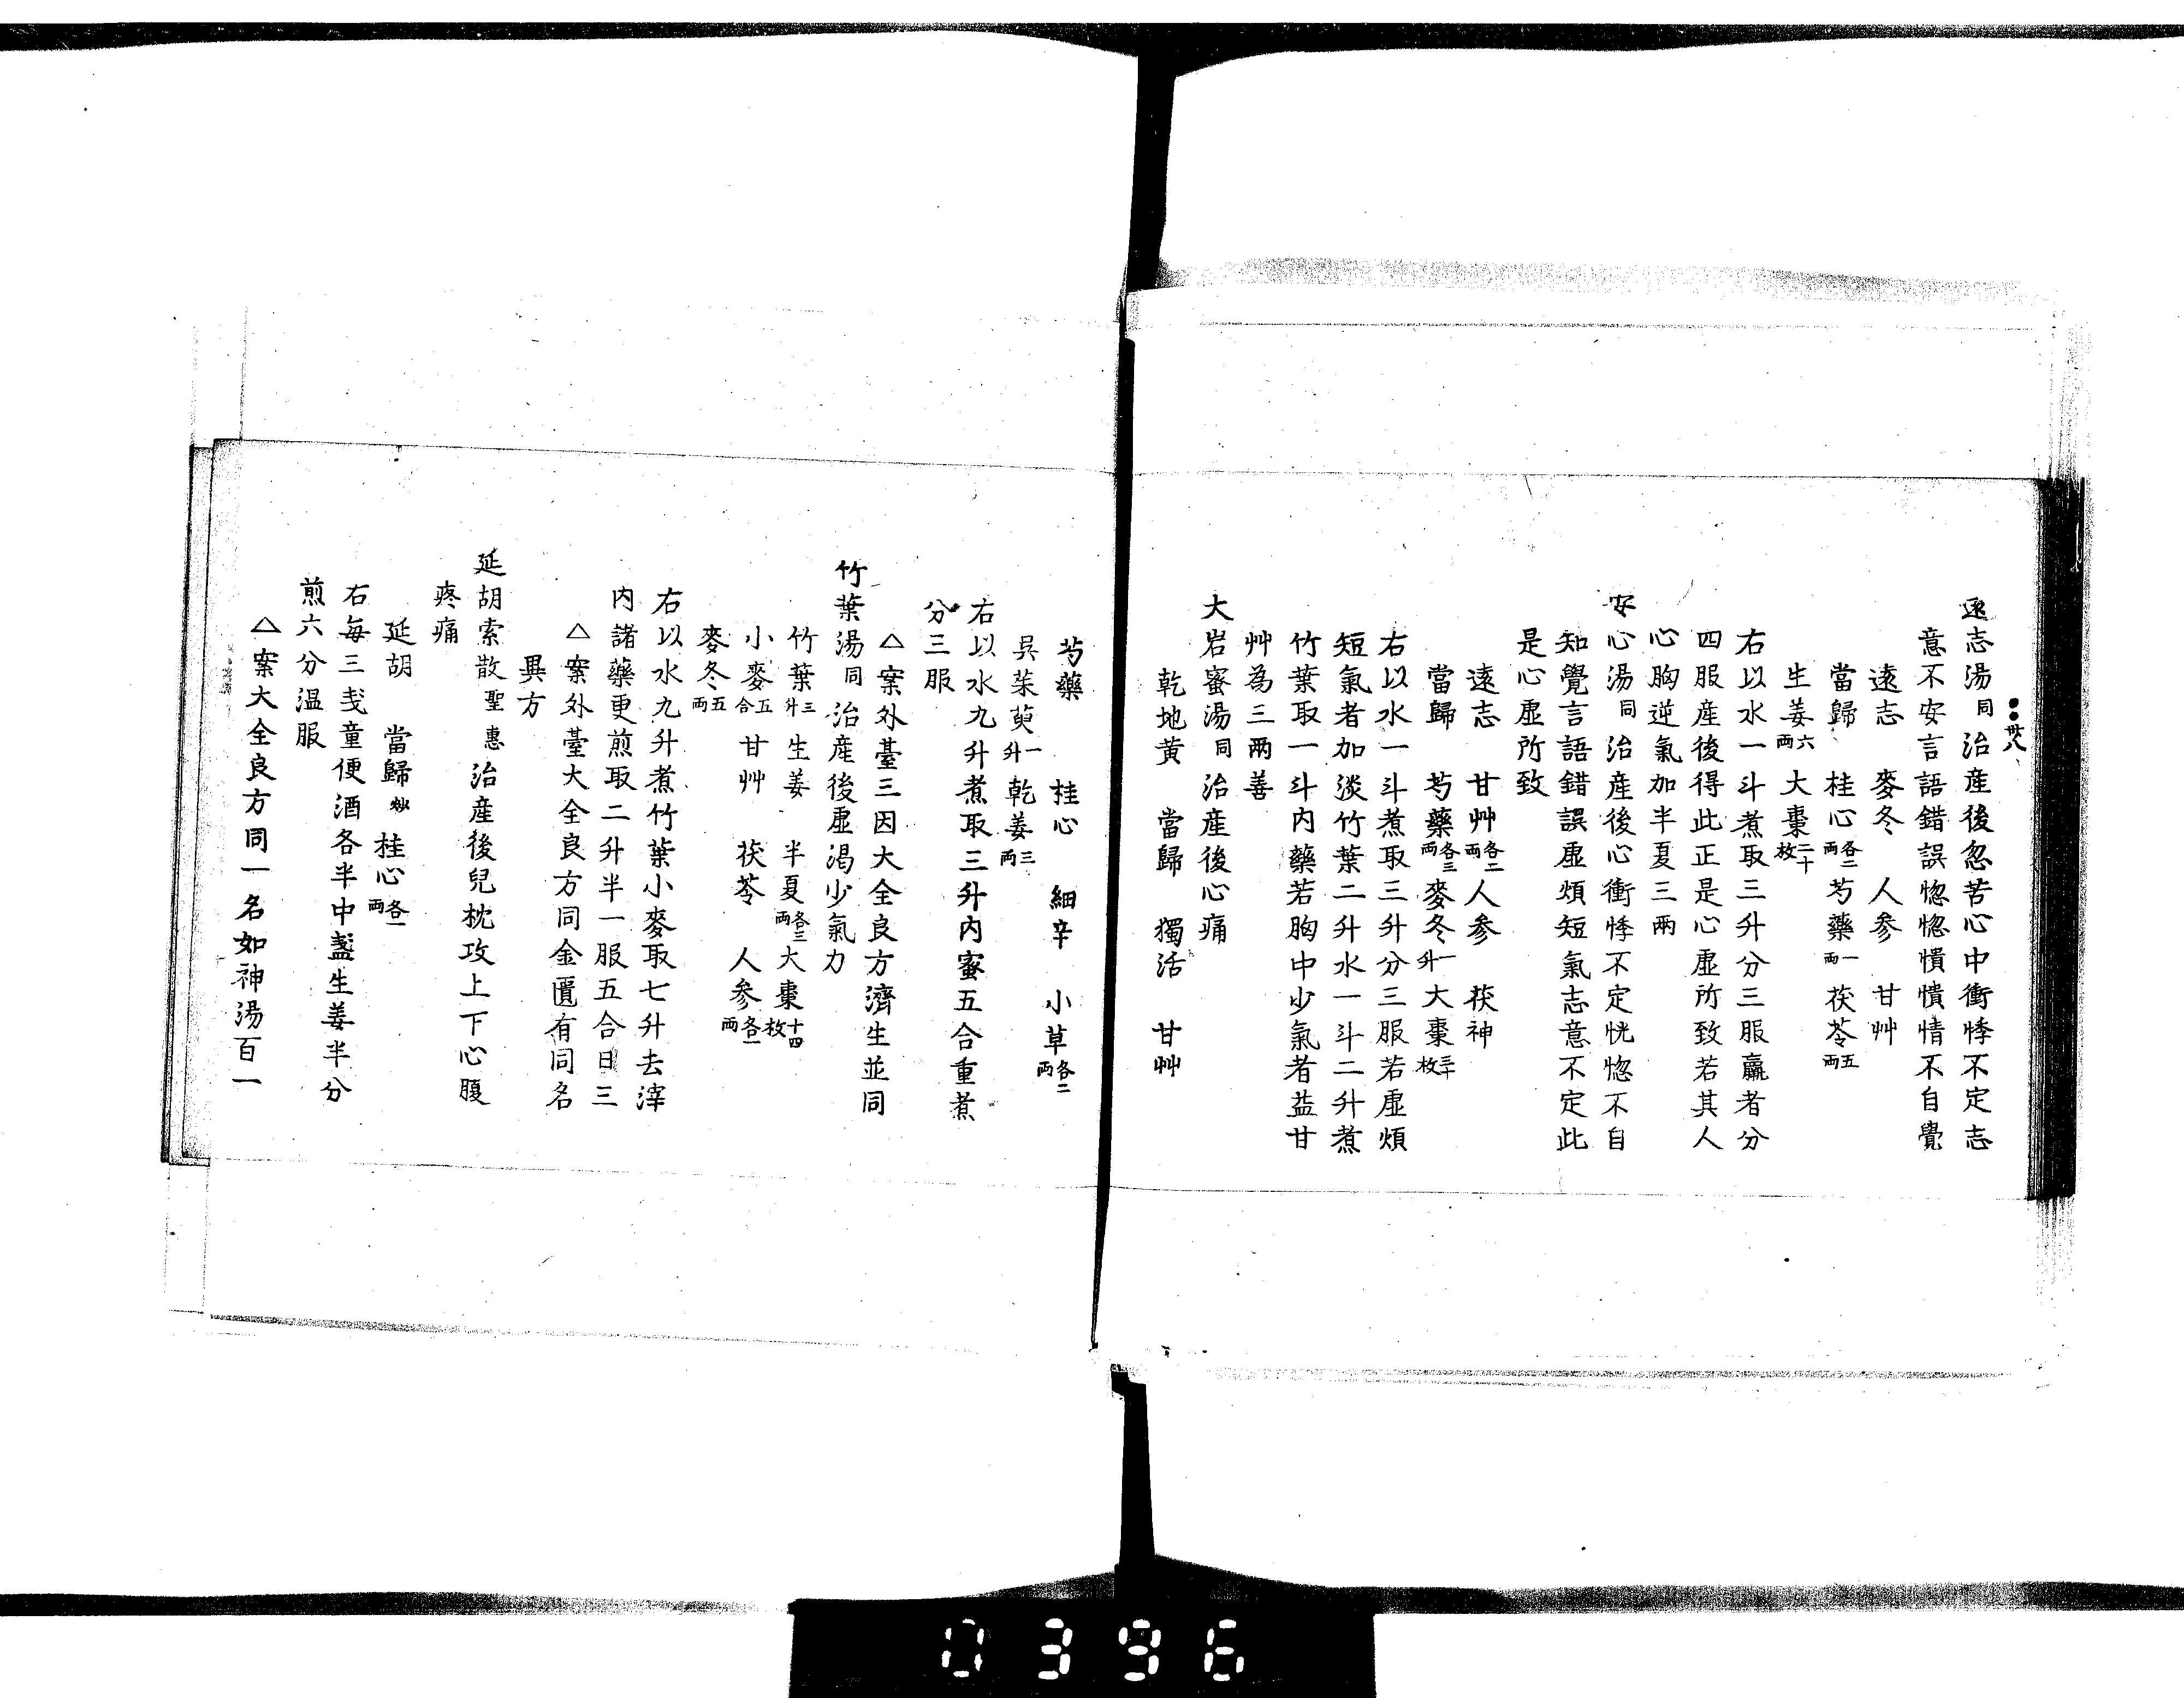 卅八
遠志湯同治産後忽苦心中衝悸不定志
意不安言語錯誤惚惚憒憒情不自覺
遠志　麥冬　人参　甘艸
當歸　桂心各二兩　芍藥一兩　茯苓五兩
生姜六兩　大棗二十枚
右以水一斗煮取三升分三服羸者分
四服産後得此正是心虚所致若其人
心胸逆氣加半夏三兩
安心湯同治産後心衝悸不定恍惚不自
知覺言語錯誤虚煩短氣志意不定此
是心虚所致
遠志　甘艸各二兩　人参　茯神
當歸　芍藥各三兩　麥冬一升　大棗三十枚
右以水一斗煮取三升分三服若虚煩
短氣者加淡竹葉二升水一斗二升煮
竹葉取一斗内藥若胸中少氣者益甘
艸為三兩善
大岩蜜湯同治産後心痛
乾地黄　當歸　獨活　甘艸
芍藥　桂心　細辛　小草各二兩
呉茱萸一升　乾姜三兩
右以水九升煮取三升内蜜五合重煮
分三服
△案外臺三因大全良方濟生並同
竹葉湯同治産後虚渇少氣力
竹葉三升　生姜　半夏各三兩　大棗十四枚
小麥五合　甘艸　茯苓　人参各一兩
麥冬五兩
右以水九升煮竹葉小麥取七升去滓
内諸藥更煎取二升半一服五合日三
△案外臺大全良方同金匱有同名
異方
延胡索散聖惠治産後兒枕攻上下心腹
疼痛
延胡　當歸炒　桂心各一兩
右每三戔童便酒各半中盞生姜半分
煎六分温服
△案大全良方同一名如神湯百一
0396